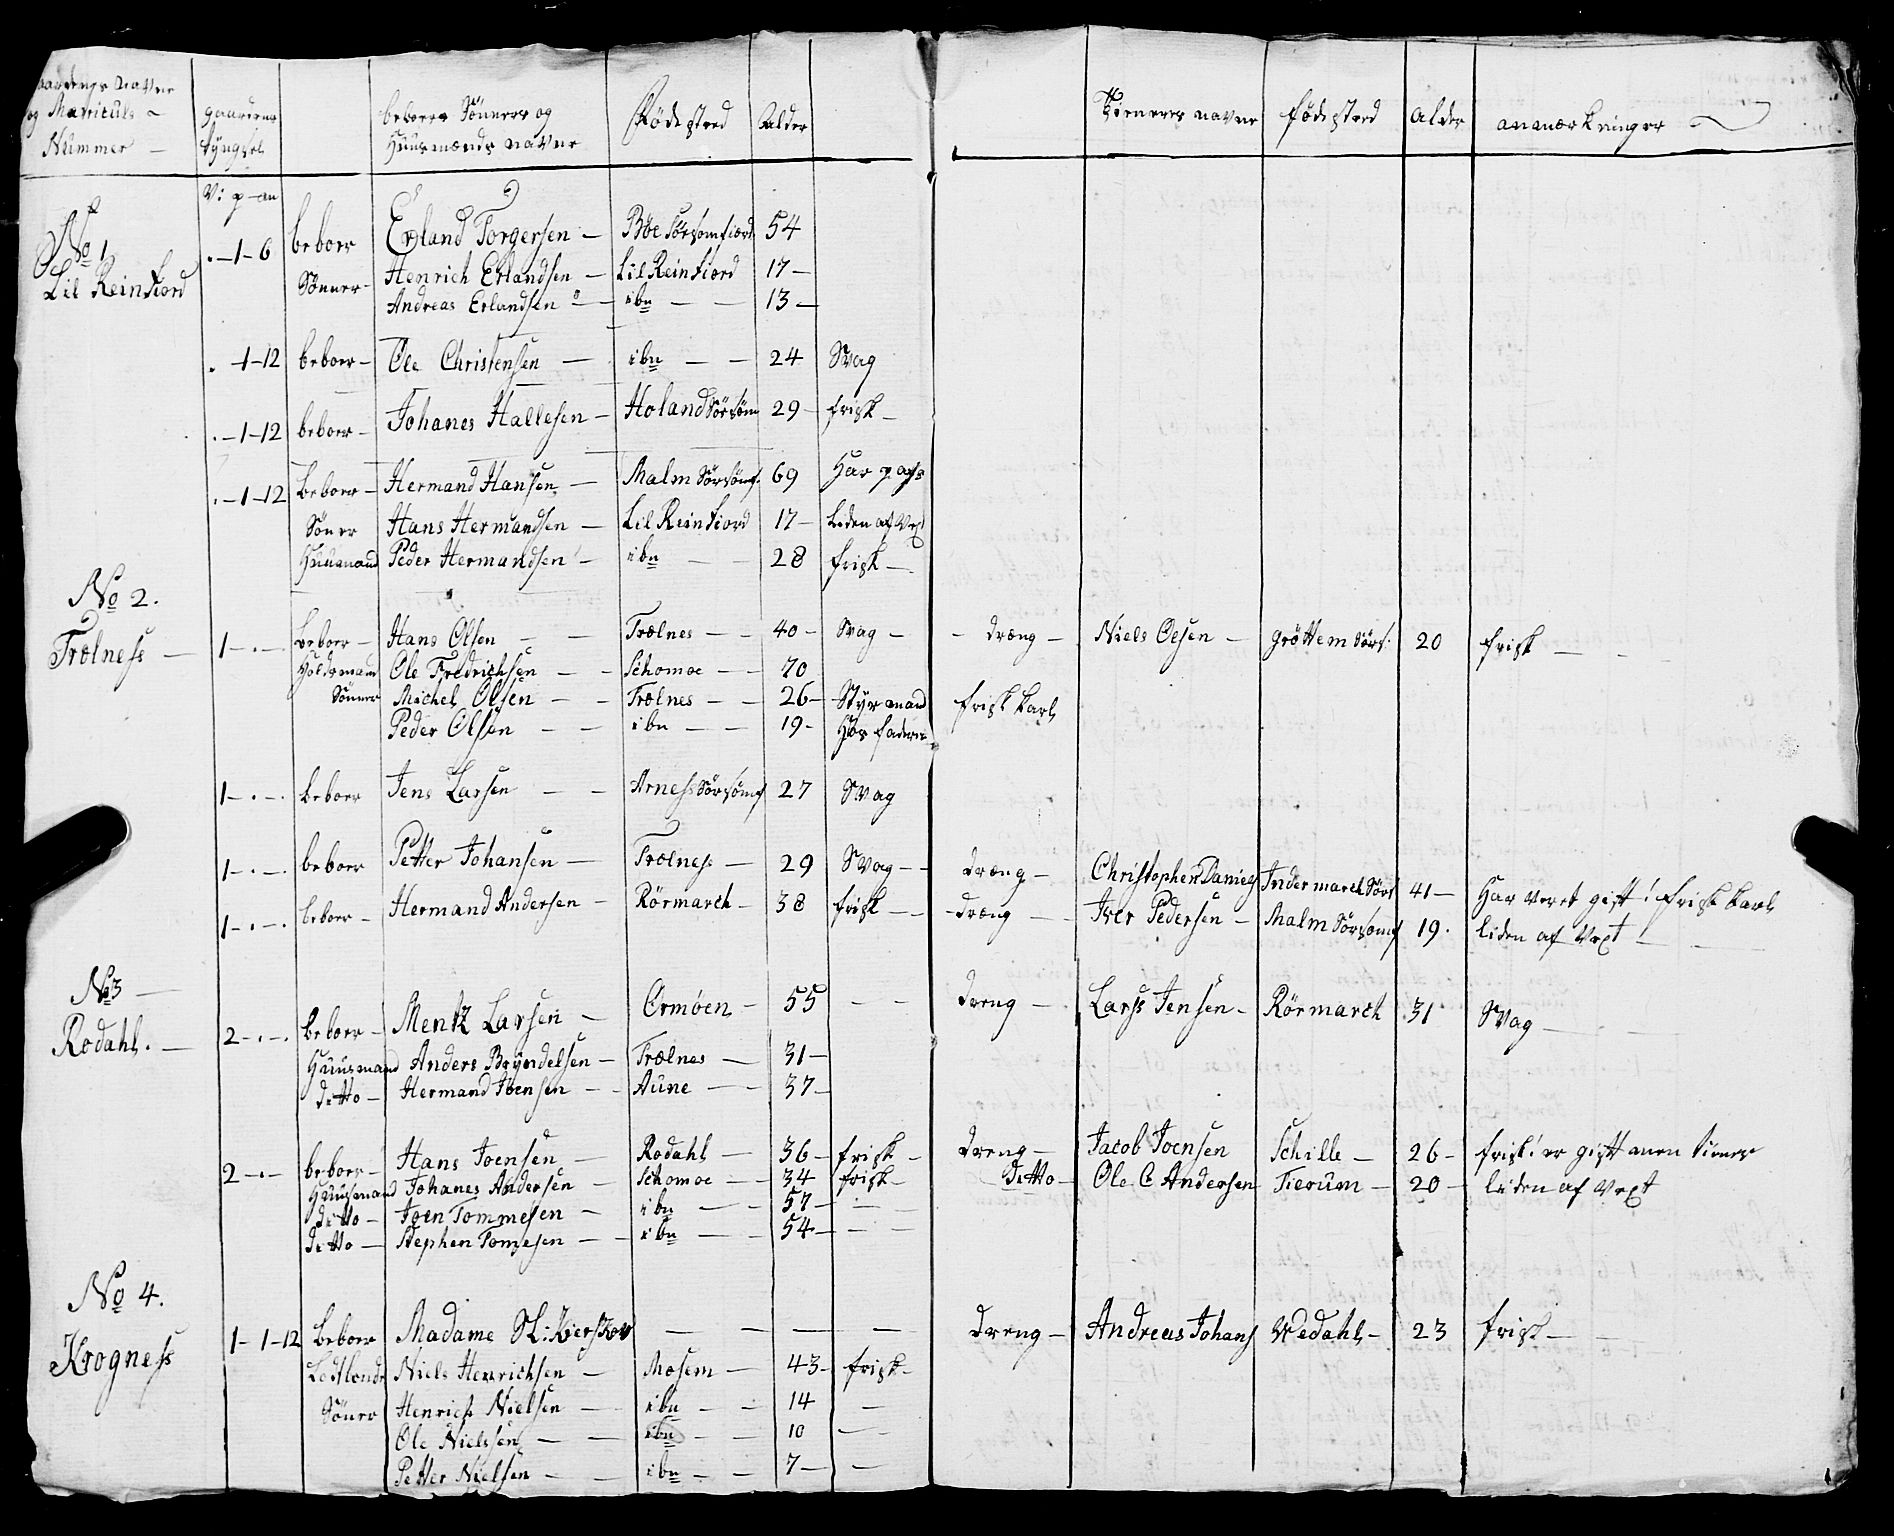 aardenes Navne og Matriculs Nummer — | gaardens tÿngsel | beboere Sönners og Huusmænds navne | Födested | Alder | Tieneres navne | födested | alder | anmærkninger
V: p–an
No 1 Lil Reinfiord | . – 1 – 6 | beboer | Erland Torgersen – | Böe Sörsomfiord | 54
Sönner – | Henrich Erlandsen – | Lil Reinfiord | 17 –
Andreas Erlandsen – | ibn – – | 13 –
. – 1 – 12 | beboer – | Ole Christensen – | ibn – – | 24 | Svag
. – 1 – 12 | beboer – | Johanes Hallesen – | Holand Sörsöm | 29 – | frisk –
. – 1 – 12 | beboer – | Hermand Hansen – | Malm Sörsömf. | 69 | Har pass
Söner | Hans Hermandsen – | Lil Reinfiord | 17 – | Liden af Vext
Huusmand | Peder Hermandsen – | ibn – – | 28 | frisk –
No 2. Trælness – | 1 – . – | beboer – | Hans Olsen – – | Trælnes – – | 40 – | Svag – | – dræng – | Niels Oesen – | gröttem Sörs. | 20 | frisk –
Holdsmand | Ole Fredrichsen – – | Schomoe – – | 70
Sönner | Michel Olsen – – | Trælnes – – | 26 – | Styrmand | frisk karl
Peder Olsen – – | ibn – – | 19 – | Hos faderen
1 – . – . | beboer | Jens Larsen – – | Arness Sörsömf | 27 | Svag
1 – . – . | beboer | Petter Johansen – | Trælness – | 29 | Svag – – | dræng – | Christopher Daniels | Indermarch Sörs | 41 – | Har veret gift! frisk karl
1 – . – . | beboer – | Hermand Andersen – | Rörmarch – | 38 | frisk – – | – dræng – | Iver Pedersen – | Malm Sörsömf | 19. | liden af Vext –
No 3 – Rodahl. – | 2 – . – . | beboer – | Mentz Larsen – | Ormöen – | 55 | – – | dreng – | Larss Jensen – | Rörmarch | 31 | Svag –
Huusmand | Anders Bryndelsen – | Trælnes – | 31 –
ditto – | Hermand Joensen – – | Aune – – | 37 –
2 – . – | beboer – | Hans Joensen – | Rodahl – | 36 – | frisk – | dreng – | Jacob Joensen | Schille – | 26 – | frisk! er gift men tiener
Huusmand | Johanes Andersen – | Schomoe – – | 34 | frisk – | ditto – | Ole C Andersen | Tierum – | 20 – | liden af Vext
ditto – | Joen Tommesen – | ibn – – | 57 – | –
ditto – | Stephen Tomesen – – | ibn – – | 54 – | – –
No 4. Krogness | 1 – 1 – 12 | beboer | Madame Sl: Kierskov | – – | – | – | dreng – | Andreas Johans | Vedahl – | 23 | frisk –
Niels Henrichsen – | Mosem – | 43 – | frisk –
Söner | Henrich Nielsen – – | ibn – – | 14 | –
Ole Nielssen – – | ibn – – | 10 | – –
Petter Nielsen – – | ibn – – | 7 – | –